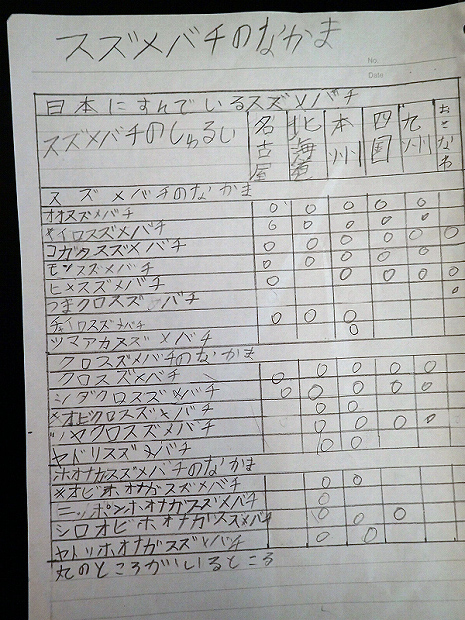 スズメバチのなかま
No.
Date
日本にすんでいるスズメバチ
スズメバチのしゅるい 名古屋 北海道 本州 四国 九州
スズメバチのなかま
オオスズメバチ ○ ○ ○ ○ ○
キイロスズメバチ ○ ○ ○ ○ ○
コガタスズメバチ ○ ○ ○ ○ ○ ○
モンスズメバチ ○ ○ ○ ○ ○
ヒメスズメバチ ○ ○ ○ ○ ○
つまクロスズメバチ ○
チャイロスズメバチ ○ ○ ○
ツマアカスズメバチ ○
クロスズメバチのなかま
クロスズメバチ ○ ○ ○ ○ ○
シダクロスズメバチ ○ ○ ○ ○ ○
メオビクロスズメバチ ○ ○
ツヤクロスズメバチ ○ ○ ○ ○
ヤドリスズメバチ ○ ○
ホオナガスズメバチのなかま
メオビホオナガスズメバチ ○ ○
ニッポンホオナガスズメバチ ○
シロオビホオナガスズメバチ ○ ○ ○
ヤトリホオナガスズメバチ ○ ○
丸のところがいるところ